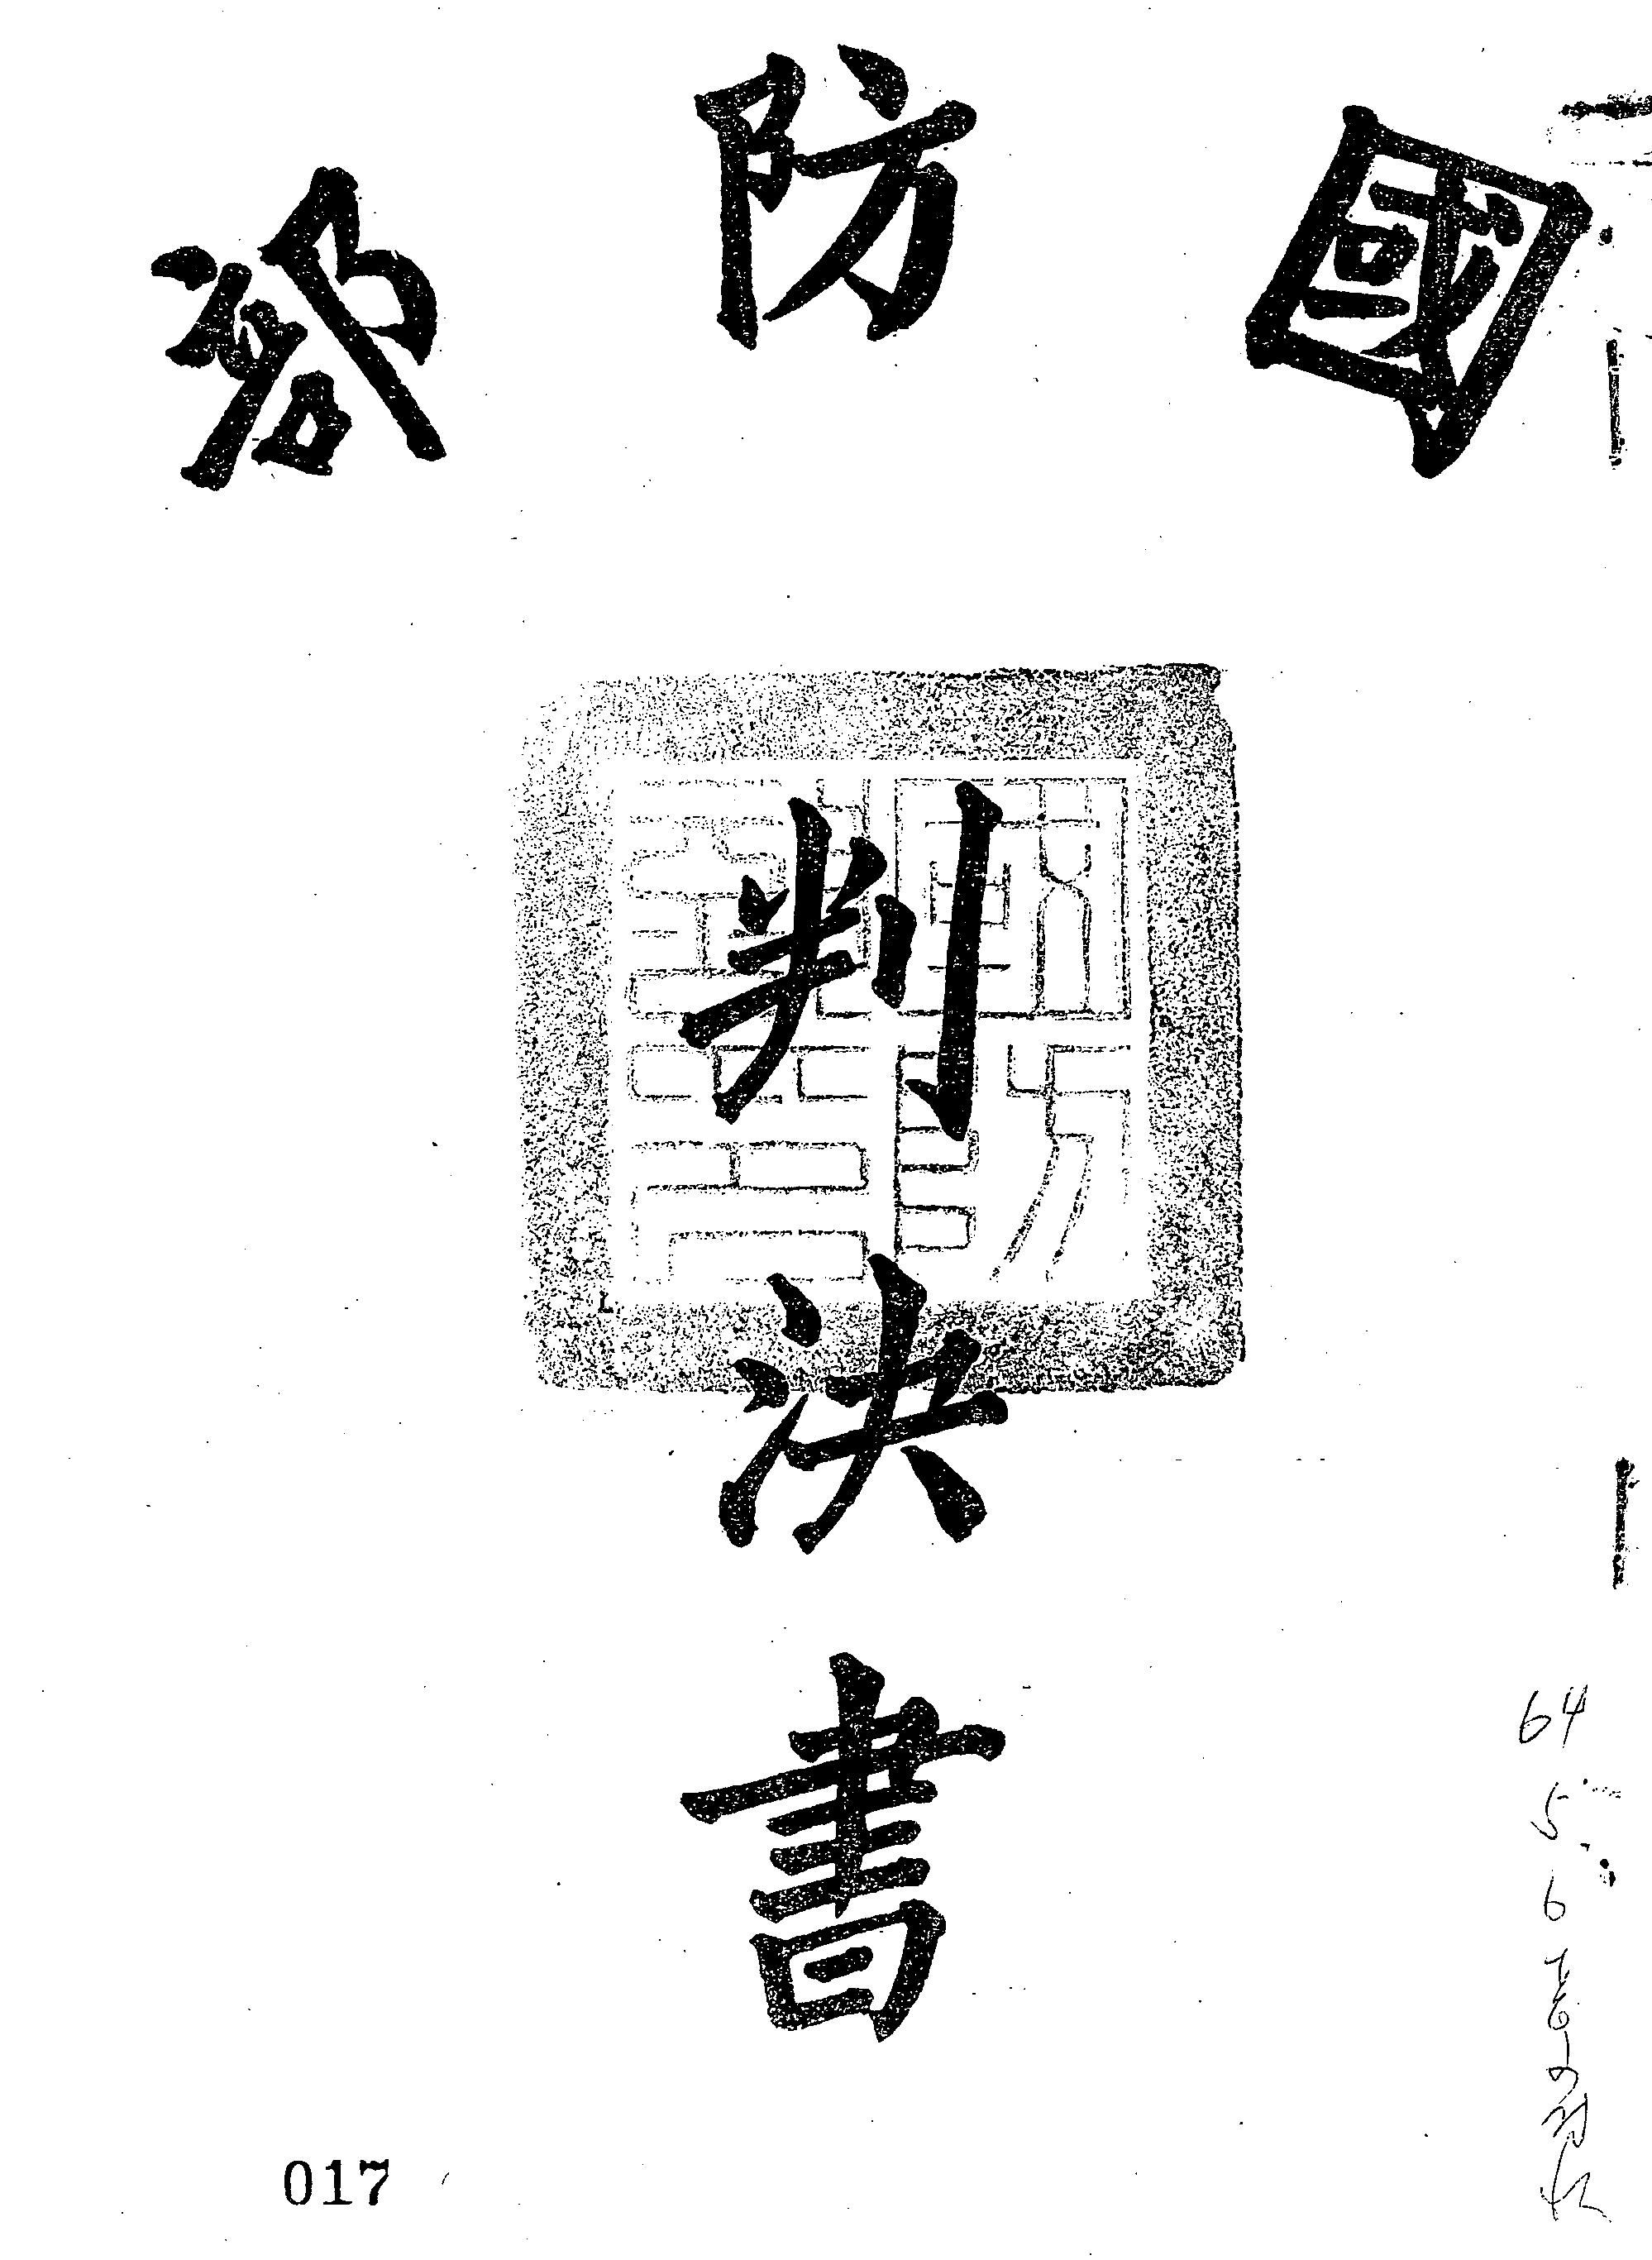 國防部
判決書
64
5
6
017